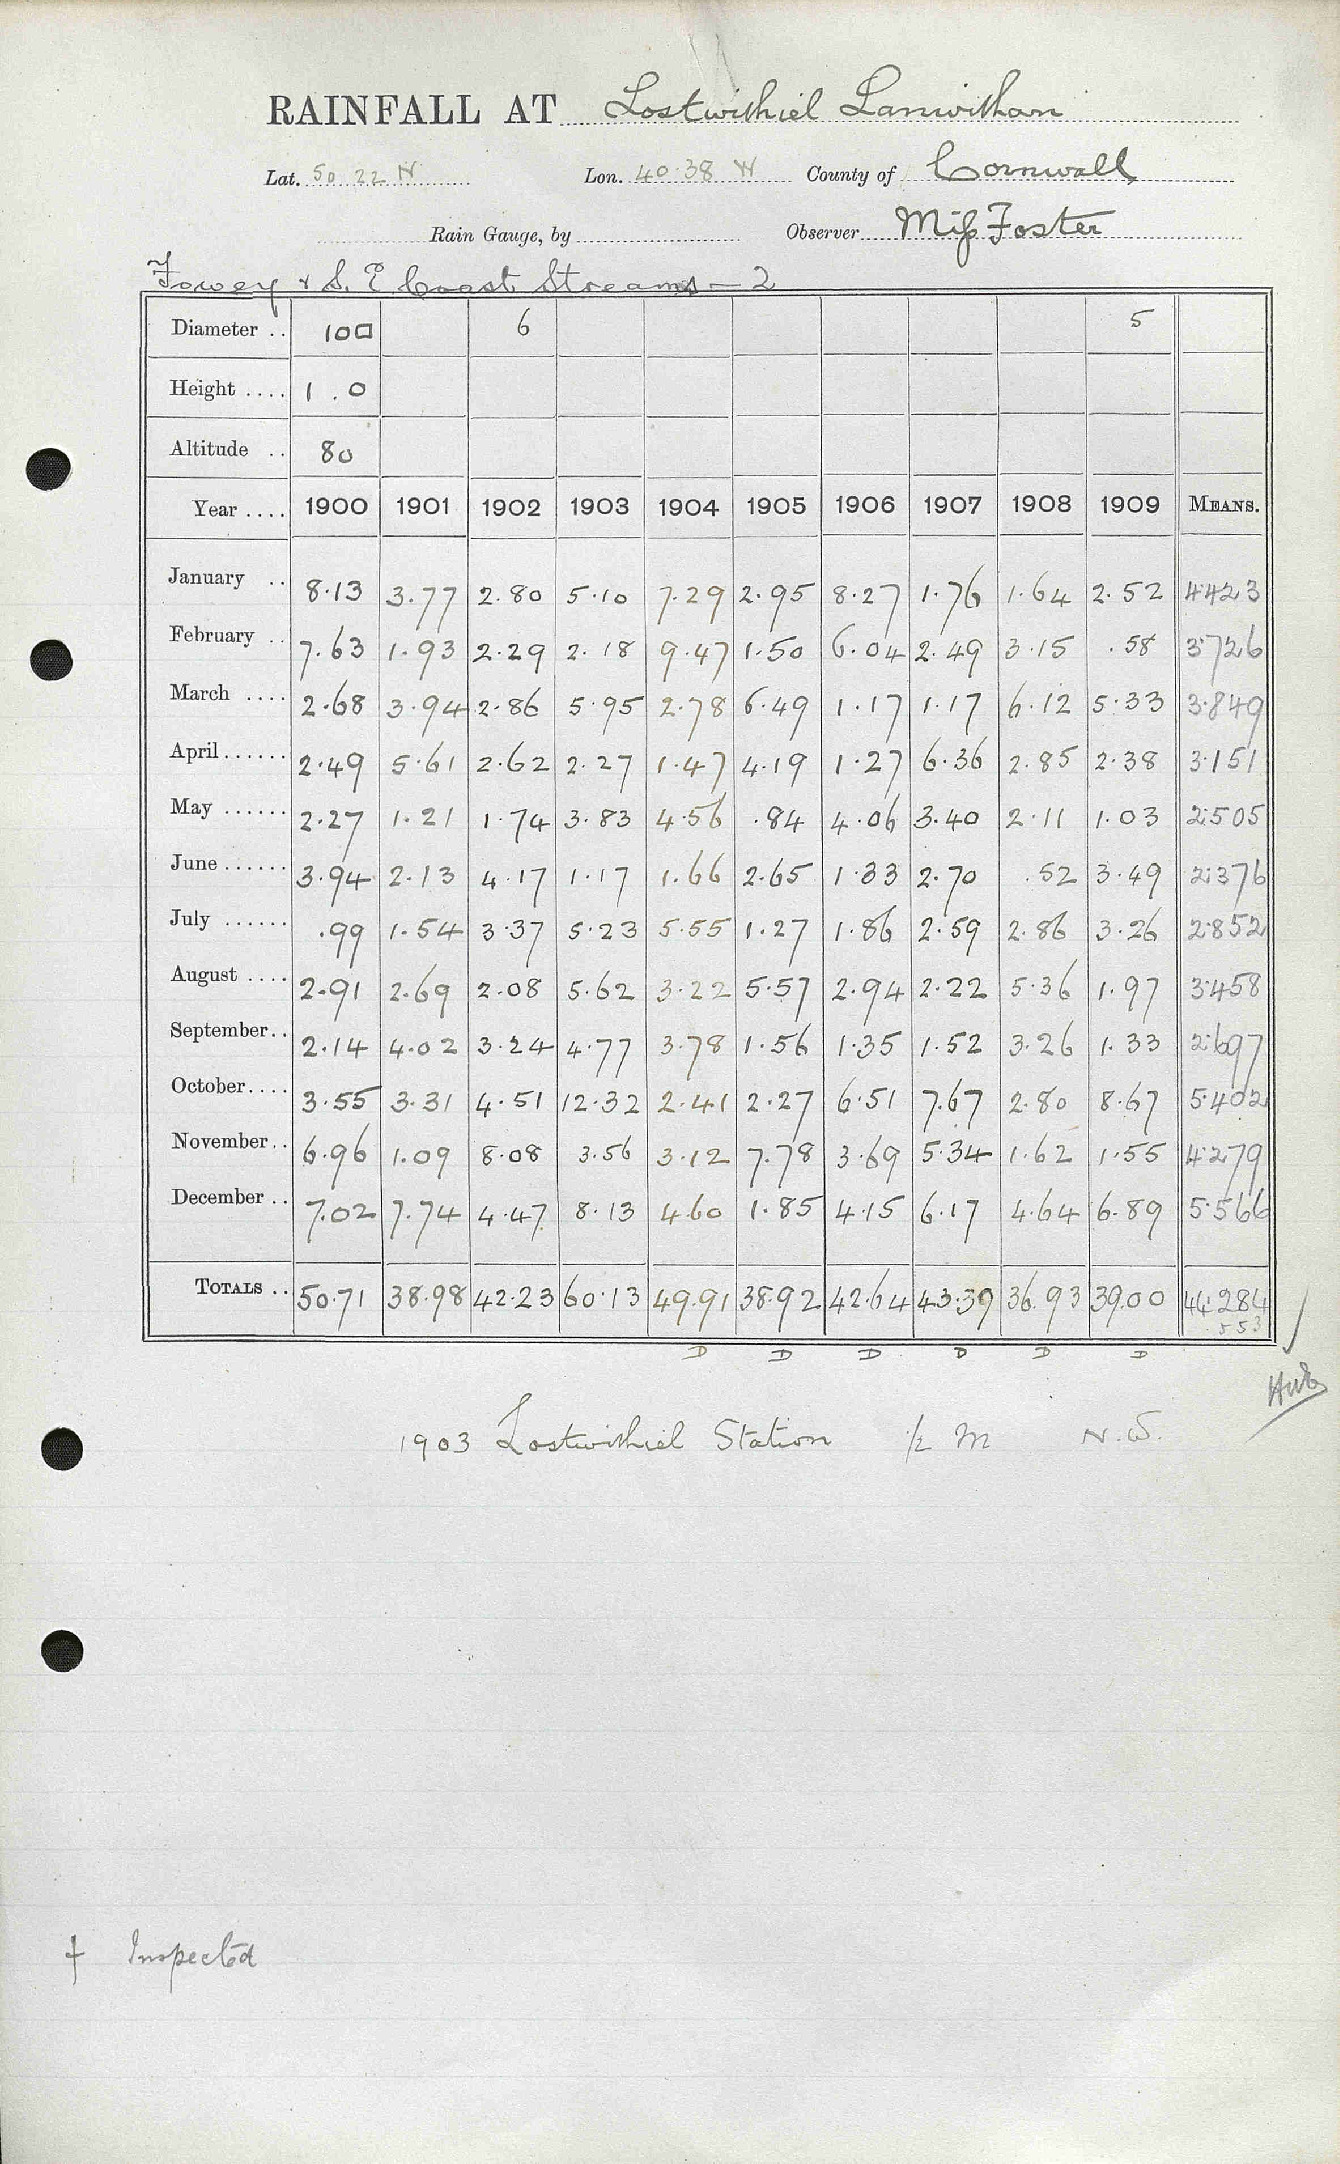 RAINFALL AT Lostwithiel Lanwithan
Lat. 50 22 N Lon. 40 38 W County of Cornwall
Rain Gauge, by Observer Miss Foster
Fowey & S. E Coast Streams - 2
Diameter .. 10□ 6 5
Height .... 1.0
Altitude .. 80
Year .... 1900 1901 1902 1903 1904 1905 1906 1907 1908 1909 MEANS.
January .. 8.13 3.77 2.80 5.10 7.29 2.95 8.27 1.76 1.64 2.52 4.423
February .. 7.63 1.93 2.29 2.18 9.47 1.50 6.04 2.49 3.15 .58 3.726
March .... 2.68 3.94 2.86 5.95 2.78 6.49 1.17 1.17 6.12 5.33 3.849
April...... 2.49 5.61 2.62 2.27 1.47 4.19 1.27 6.36 2.85 2.38 3.151
May ...... 2.27 1.21 1.74 3.83 4.56 .84 4.06 3.40 2.11 1.03 2.505
June ...... 3.94 2.13 4.17 1.17 1.66 2.65 1.33 2.70 .52 3.49 2.376
July ...... .99 1.54 3.37 5.23 5.55 1.27 1.86 2.59 2.86 3.26 2.852
August .... 2.91 2.69 2.08 5.62 3.22 5.57 2.94 2.22 5.36 1.97 3.458
September.. 2.14 4.02 3.24 4.77 3.78 1.56 1.35 1.52 3.26 1.33 2.697
October.... 3.55 3.31 4.51 12.32 2.41 2.27 6.51 7.67 2.80 8.67 5.402
November.. 6.96 1.09 8.08 3.56 3.12 7.78 3.69 5.34 1.62 1.55 4.279
December .. 7.02 7.74 4.47 8.13 4.60 1.85 4.15 6.17 4.64 6.89 5.566
TOTALS .. 50.71 38.98 42.23 60.13 49.91 38.92 42.64 43.39 36.93 39.00 44.284
553
D D D D D D
1903 Lostwithiel Station 1/2 M N.W.
‡ Inspected